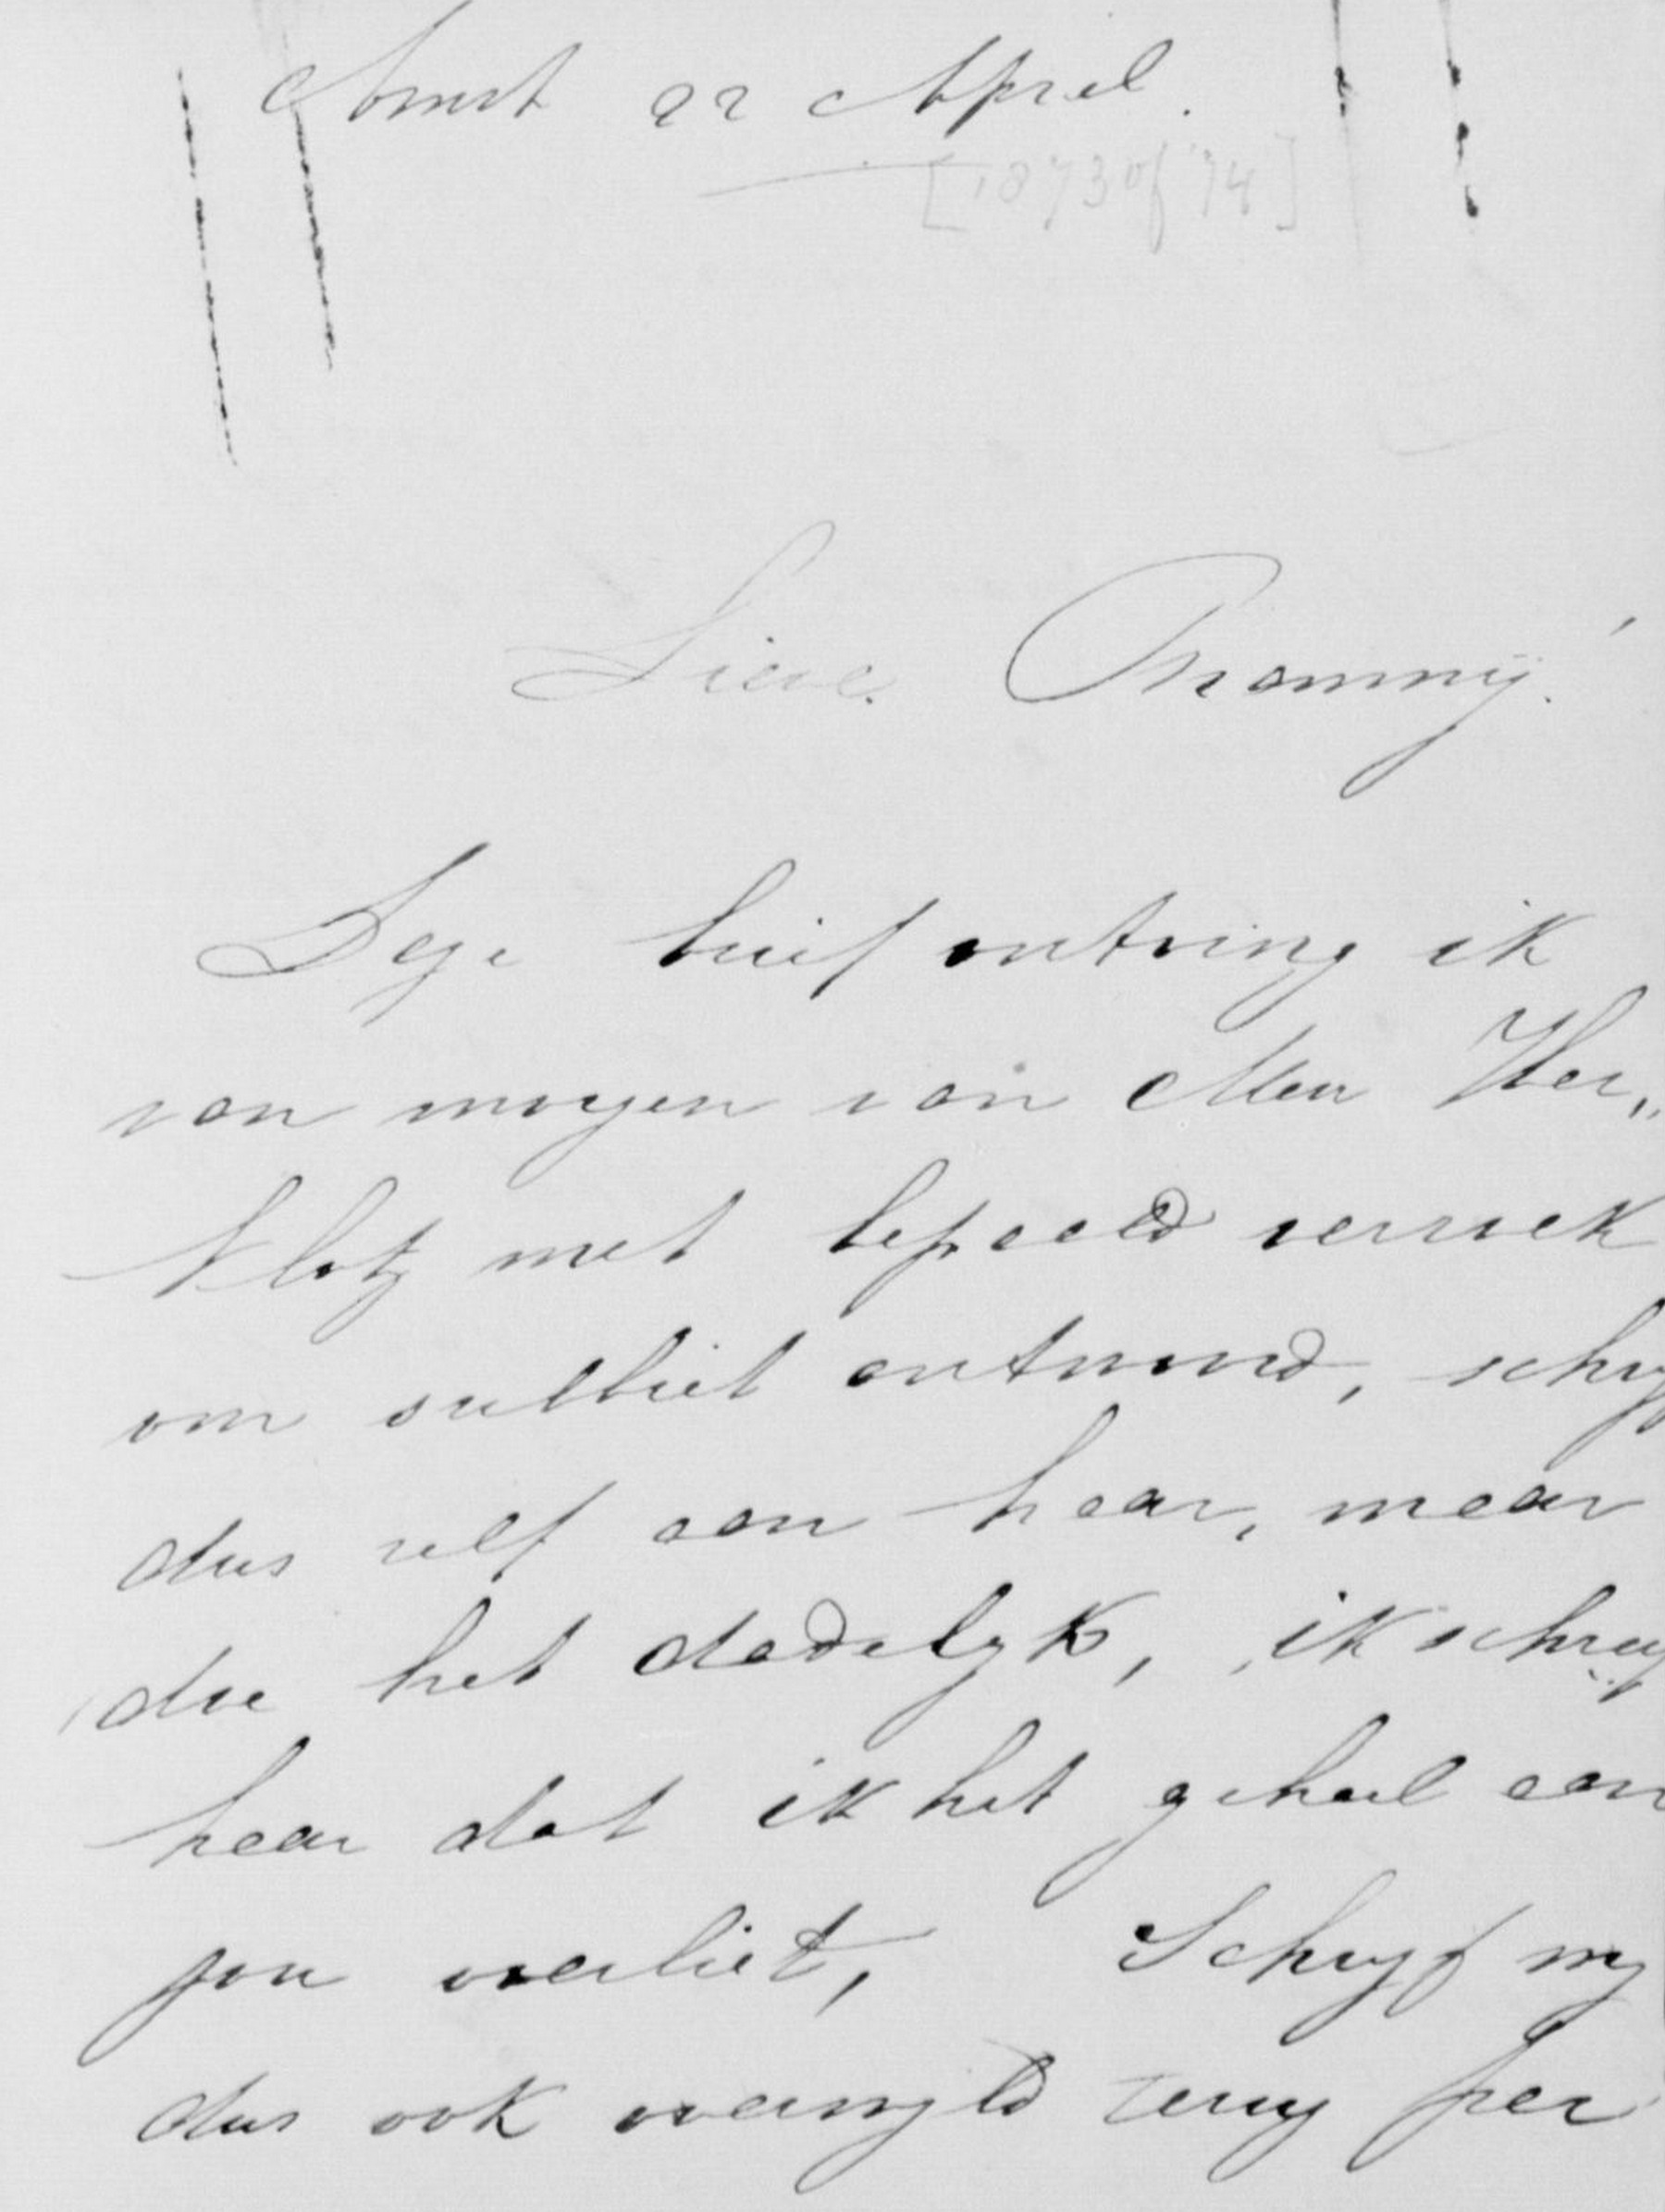 Amst 22 April.
[1873 of '74]
Lieve Mammy!
Deze brief ontving ik
van morgen van Mevr Her„
klotz met bepaald verzoek
om subiet antwoord, schryf
dus zelf aan haar, maar
doe het dadelyk, ik schreef
haar dat ik het geheel aan
jou overliet, Schryf my
dus ook overwyld terug per